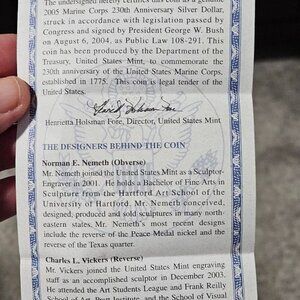 The undersigned hereby certifies this coin as a genuine
2005 Marine Corps 230th Anniversary Silver Dollar,
struck in accordance with legislation passed by
Congress and signed by President George W. Bush
on August 6, 2004, as Public Law 108-291. This
coin has been produced by the Department of the
Treasury, United States Mint, to commemorate the
230th anniversary of the United States Marine Corps,
established in 1775. This coin is legal tender of the
United States.
Henrietta Holsman Fore, Director, United States Mint
THE DESIGNERS BEHIND THE COIN
Norman E. Nemeth (Obverse)
Mr. Nemeth joined the United States Mint as a Sculptor-
Engraver in 2001. He holds a Bachelor of Fine Arts in
Sculpture from the Hartford Art School of the
University of Hartford. Mr. Nemeth conceived,
designed, produced and sold sculptures in many north-
eastern states. Mr. Nemeth's most recent designs
include the reverse of the Peace Medal nickel and the
reverse of the Texas quarter.
Charles L. Vickers (Reverse)
Mr. Vickers joined the United States Mint engraving
staff as an accomplished sculptor in December 2003.
He attended the Art Students League and Frank Reilly
School of Art, Pratt Institute, and the School of Visual